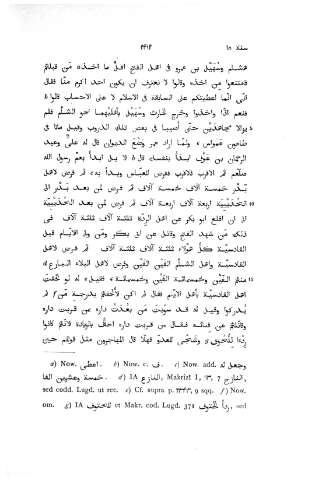 سنة ١٥ ٢٤١٢
هشام وسُهَيْل بن عمرو فى اهل الفتح اقلّ ما اخذه من قبلهم
فامتنعوا من اخذه وقالوا لا نعترف ان يكون احد اكرم منّا فقال
انّى انّما اعطيتكم على السابقة فى الاسلام لا على الاحساب قالوا
فنعم اذا واخذوا وخرج الحارث وسُهَيل بأهليهما نحو الشأم فلم
يزالا مجاهدَيْن حتى أُصيبا فى بعض تلك الدروب وقيل ماتا فى
طاعون عَمَواس، ولمّا اراد عمر وضع الديوان قال له علىّ وعبد
الرحمان بن عوف ابدأ بنفسك قال لا بل ابدأ بعمّ رسول الله
صلّعم ثم الاقرب فالاقرب ففرض للعبّاس وبدأ به ثم فرض لاهل
بَدْر خمسة آلاف خمسة آلاف ثم فرض لمن بعد بَدْر الى
الحُدَيْبية اربعة آلاف اربعة آلاف ثم فرض لمن بعد الحُدَيْبية
الى ان اقلع ابو بكر عن اهل الرِدّة ثلثة آلاف ثلثة آلاف فى
ذلك من شهد الفتح وقاتل عن ابى بكر ومن ولى الايّام قبل
القادسيّة كلّ هؤلاء ثلثة آلاف ثلثة آلاف ثم فرض لاهل
القادسيّة واهل الشأم الفَيْن الفَيْن وفرض لاهل البلاء البارع
منهم الفَيْن وخمسمائة الفَيْن وخمسمائة فقيل له لو الحقت
اهل القادسيّة بأهل الايّام فقال لم اكن لأُلحقهم بدرجة من لم
يُدركوا وقيل له قد سوّيت من بعُدت داره بمن قربت داره
وقاتلهم عن فنائه فقال من قربت داره احقّ بالزيادة لانّهم كانوا
رِدْءًا للحُتوف وشَجًى للعدوّ فهلّا قال المهاجرون مثل قولكم حين
a) Now. اعطى. b) Now. c. ف. c) Now. add. وجعل له
خمسة وعشرين الفا. d) IA النازع, Makrîzî I, ٩٣, 7 النازح,
sed codd. Lugd. ut rec. e) Cf. supra p. ٢٣٤٣, 9 sqq. f) Now.
om. g) IA للحتوف et Makr. cod. Lugd. 372 ردأ لحتوف, sed